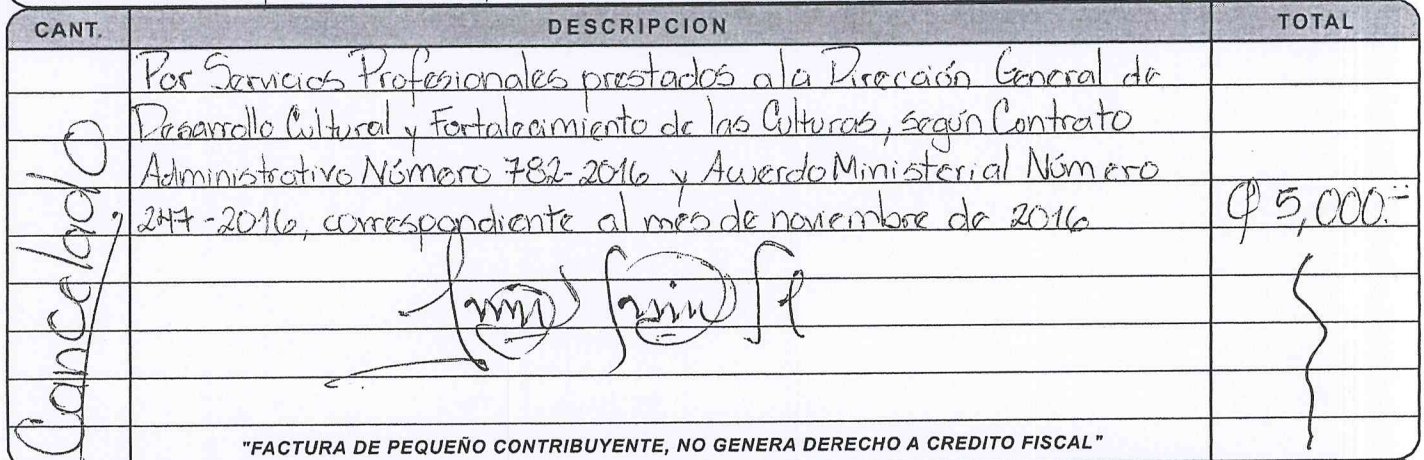 CANT. DESCRIPCION TOTAL
Por Servicios Profesionales prestados a la Dirección General de
Desarrollo Cultural y Fortalecimiento de las Culturas, según Contrato
Administrativo Número 782-2016 y Acuerdo Ministerial Número
247-2016, correspondiente al mes de noviembre de 2016 Q 5,000.=
Cancelado
"FACTURA DE PEQUEÑO CONTRIBUYENTE, NO GENERA DERECHO A CREDITO FISCAL"